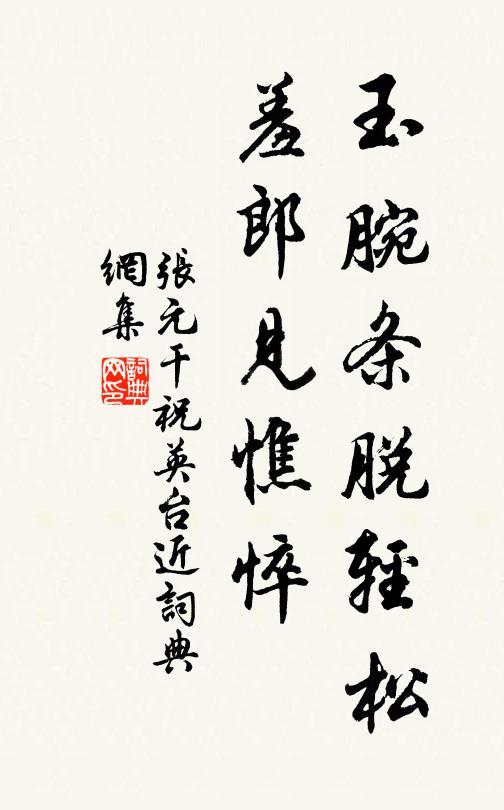 玉腕条脱輕松
羞郎見憔悴
張元干祝英台近詞典
網集
詞典
网印